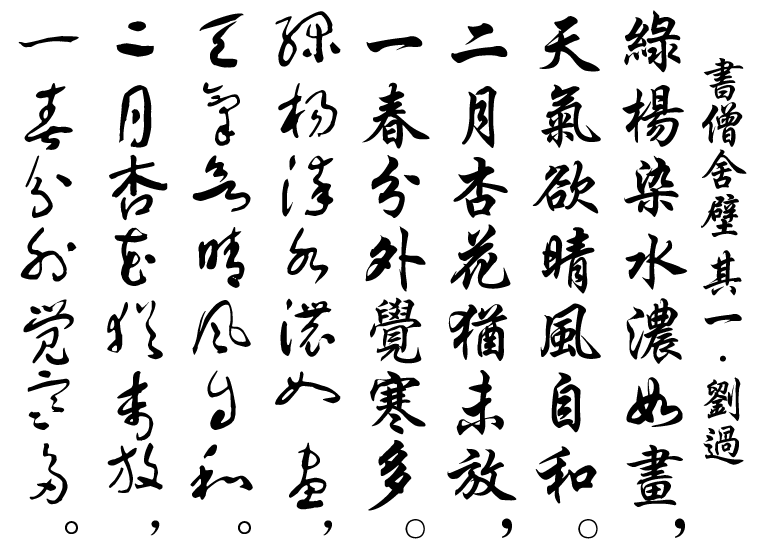 書僧舍壁其一·劉過
綠楊染水濃如畫，
天氣欲晴風自和。
二月杏花猶未放，
一春分外覺寒多。
綠楊染水濃如畫，
天氣欲晴風自和。
二月杏花猶未放，
一春分外覺寒多。